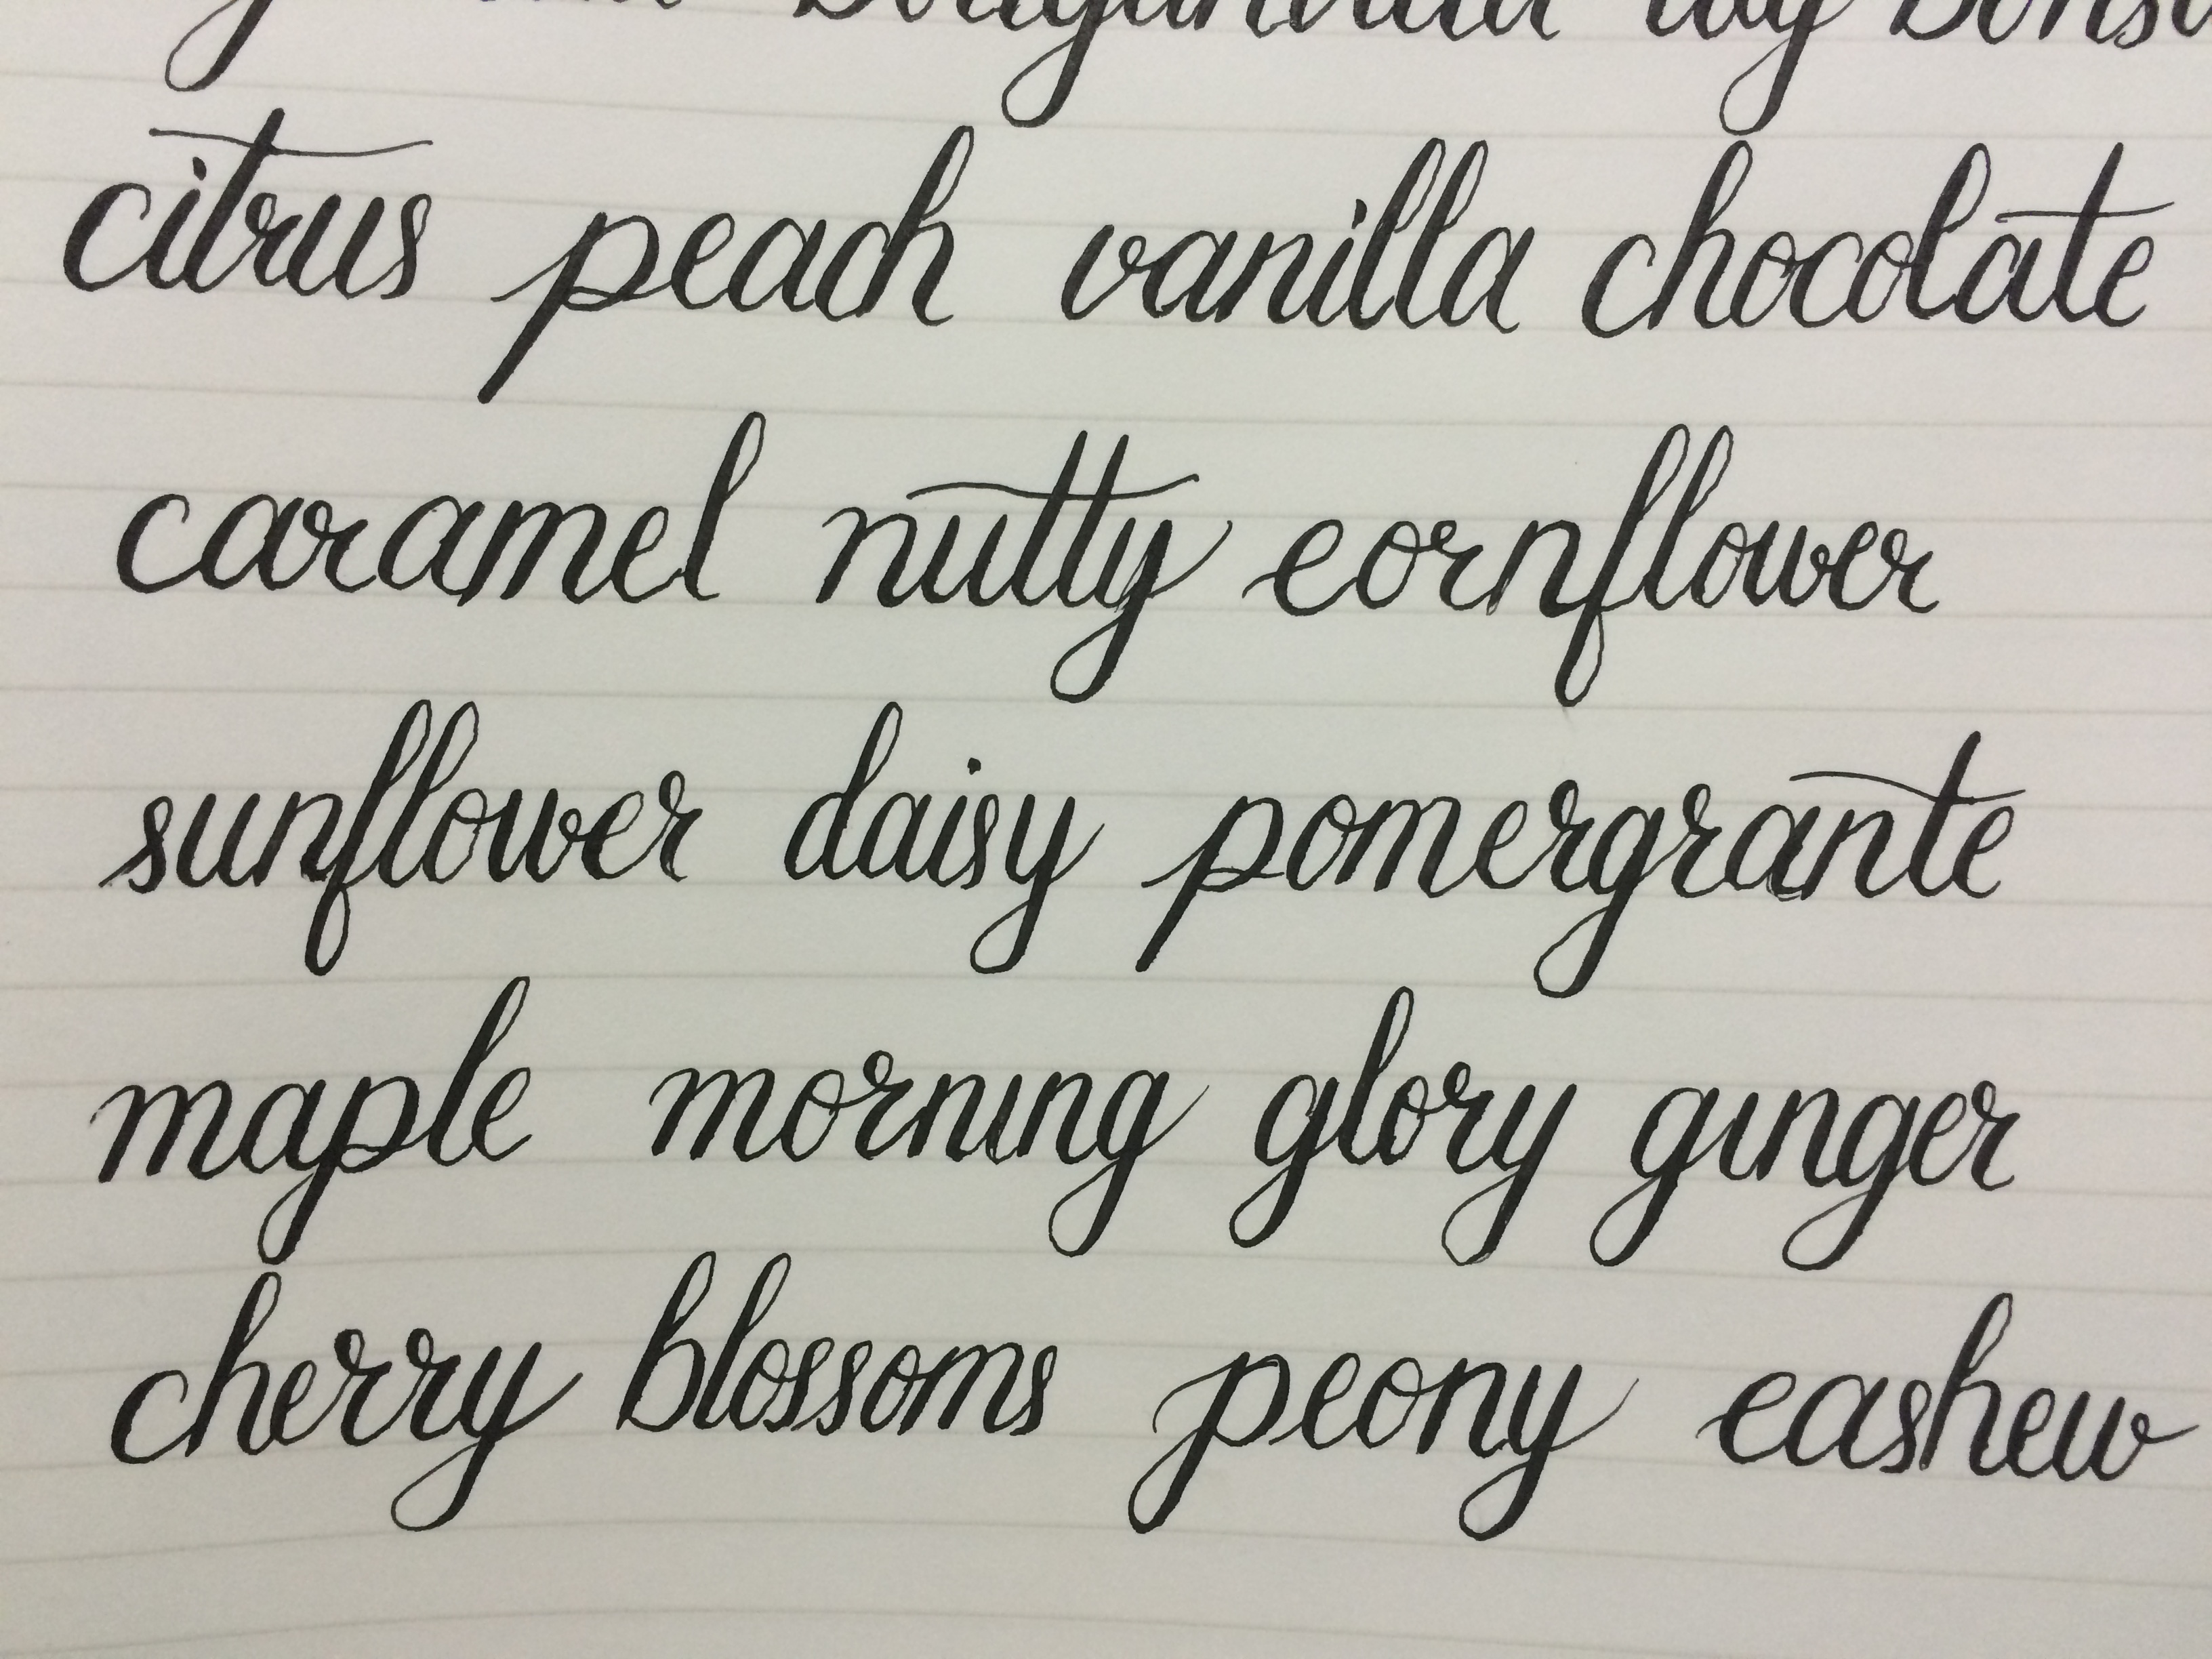 citrus peach vanilla chocolate
caramel nutty cornflower
sunflower daisy pomergrante
maple morning glory ginger
cherry blossoms peony cashew